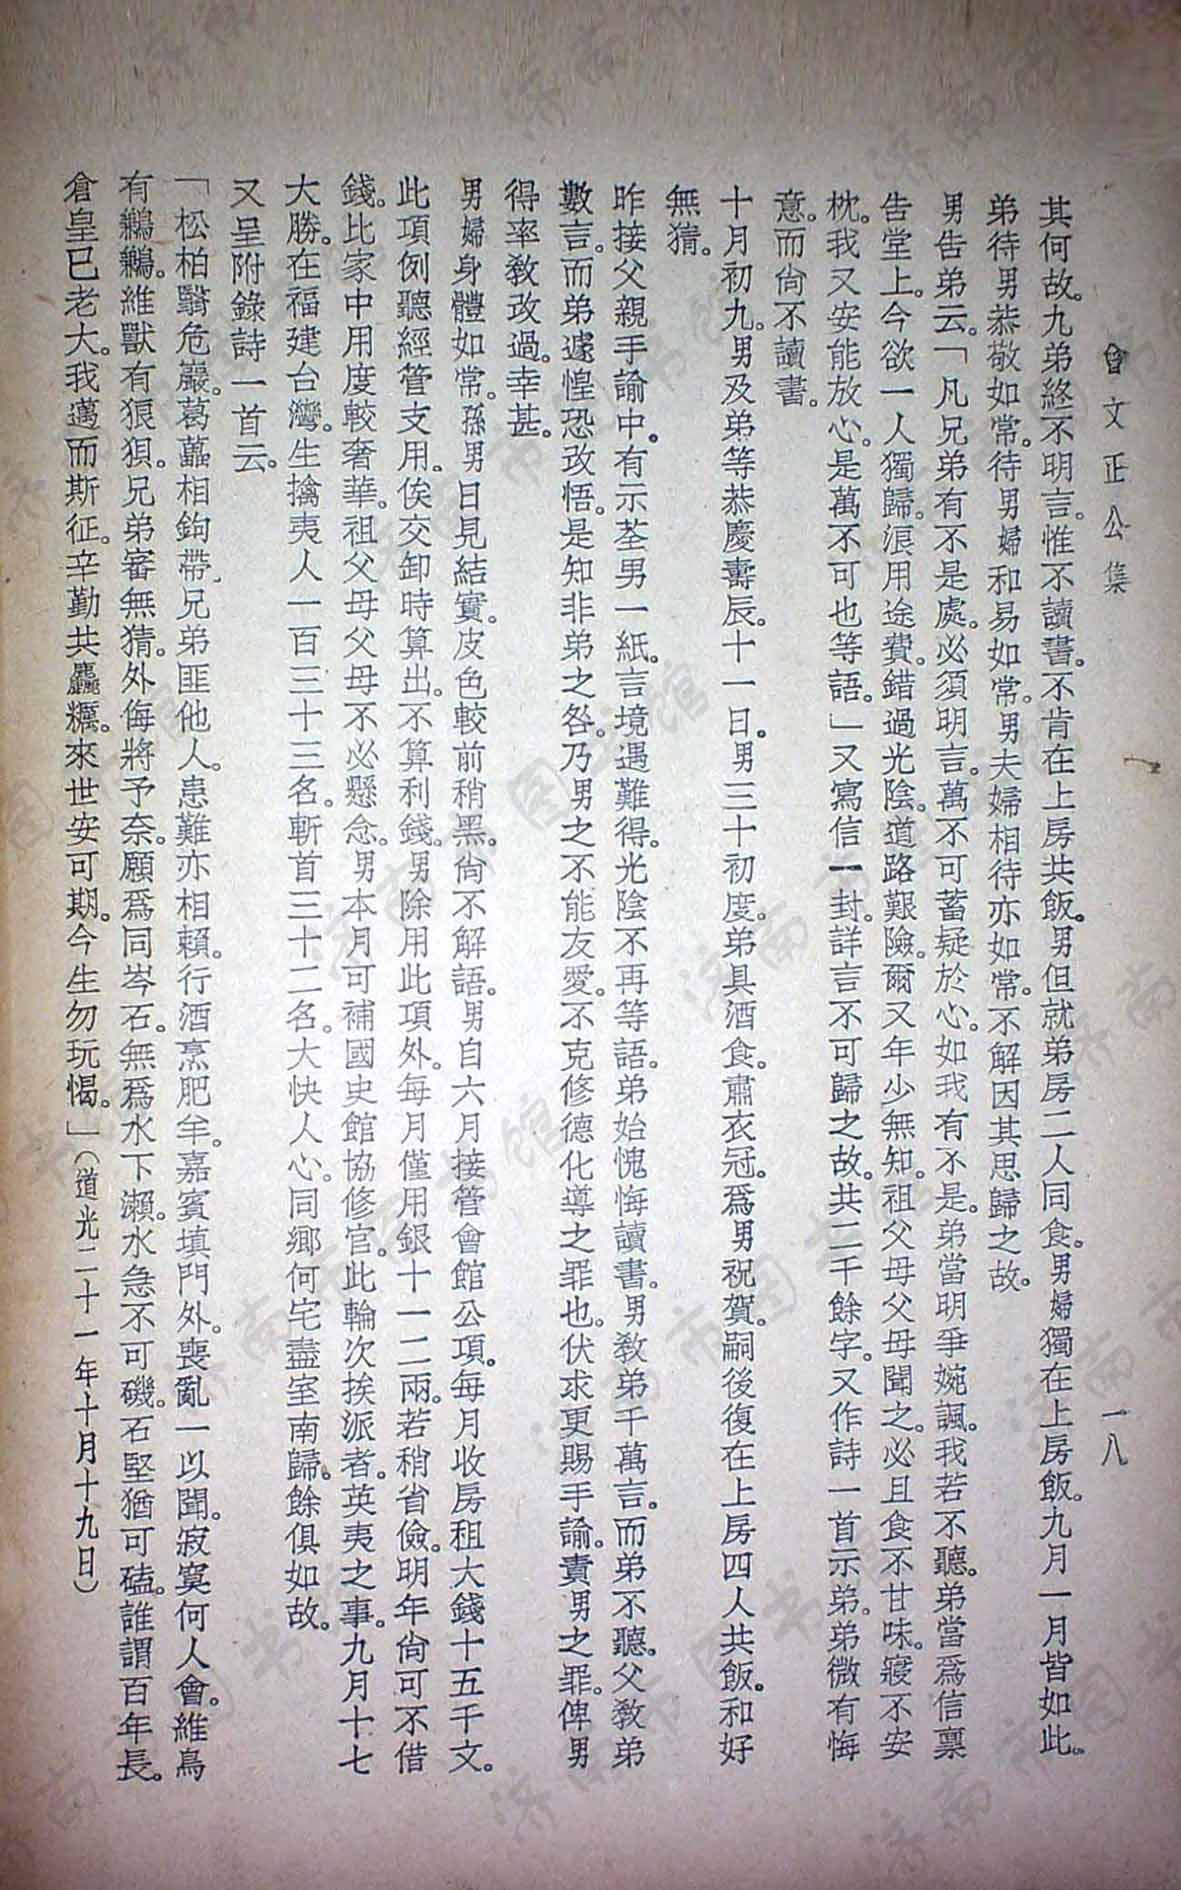 曾文正公集
一八
其何故。九弟終不明言。惟不讀書。不肯在上房共飯。男但就弟房二人同食。男婦獨在上房飯。九月一月皆如此。
弟待男恭敬如常。待男婦和易如常。男夫婦相待亦如常。不解因其思歸之故。
男告弟云。「凡兄弟有不是處。必須明言。萬不可蓄疑於心。如我有不是。弟當明爭婉諷。我若不聽。弟當爲信稟
告堂上。今欲一人獨歸。浪用途費。錯過光陰。道路艱險。爾又年少無知。祖父母父母聞之。必且食不甘味。寢不安
枕。我又安能放心。是萬不可也等語。」又寫信一封。詳言不可歸之故。共二千餘字。又作詩一首示弟。弟微有悔
意。而尙不讀書。
十月初九。男及弟等恭慶壽辰。十一日。男三十初度。弟具酒食。肅衣冠。爲男祝賀。嗣後復在上房四人共飯。和好
無猜。
昨接父親手諭中。有示荃男一紙。言境遇難得。光陰不再等語。弟始愧悔讀書。男敎弟千萬言。而弟不聽。父敎弟
數言。而弟遽惶恐改悟。是知非弟之咎。乃男之不能友愛。不克修德化導之罪也。伏求更賜手諭。責男之罪。俾男
得率敎改過。幸甚。
男婦身體如常。孫男日見結實。皮色較前稍黑。尙不解語。男自六月接管會館公項。每月收房租大錢十五千文。
此項例聽經管支用。俟交卸時算出。不算利錢。男除用此項外。每月僅用銀十一二兩。若稍省儉。明年尙可不借
錢。比家中用度較奢華。祖父母父母不必懸念。男本月可補國史館協修官。此輪次挨派者。英夷之事。九月十七
大勝。在福建台灣。生擒夷人一百三十三名。斬首三十二名。大快人心。同鄉何宅盡室南歸。餘俱如故。
又呈附錄詩一首云。
「松柏翳危巖。葛藟相鉤帶。兄弟匪他人。患難亦相賴。行酒烹肥羊。嘉賓填門外。喪亂一以聞。寂寞何人會。維鳥
有鶼鶼。維獸有狼狽。兄弟審無猜。外侮將予奈。願爲同岑石。無爲水下瀨。水急不可磯。石堅猶可磕。誰謂百年長。
倉皇已老大。我邁而斯征。辛勤共麤糲。來世安可期。今生勿玩愒。」（道光二十一年十月十九日）